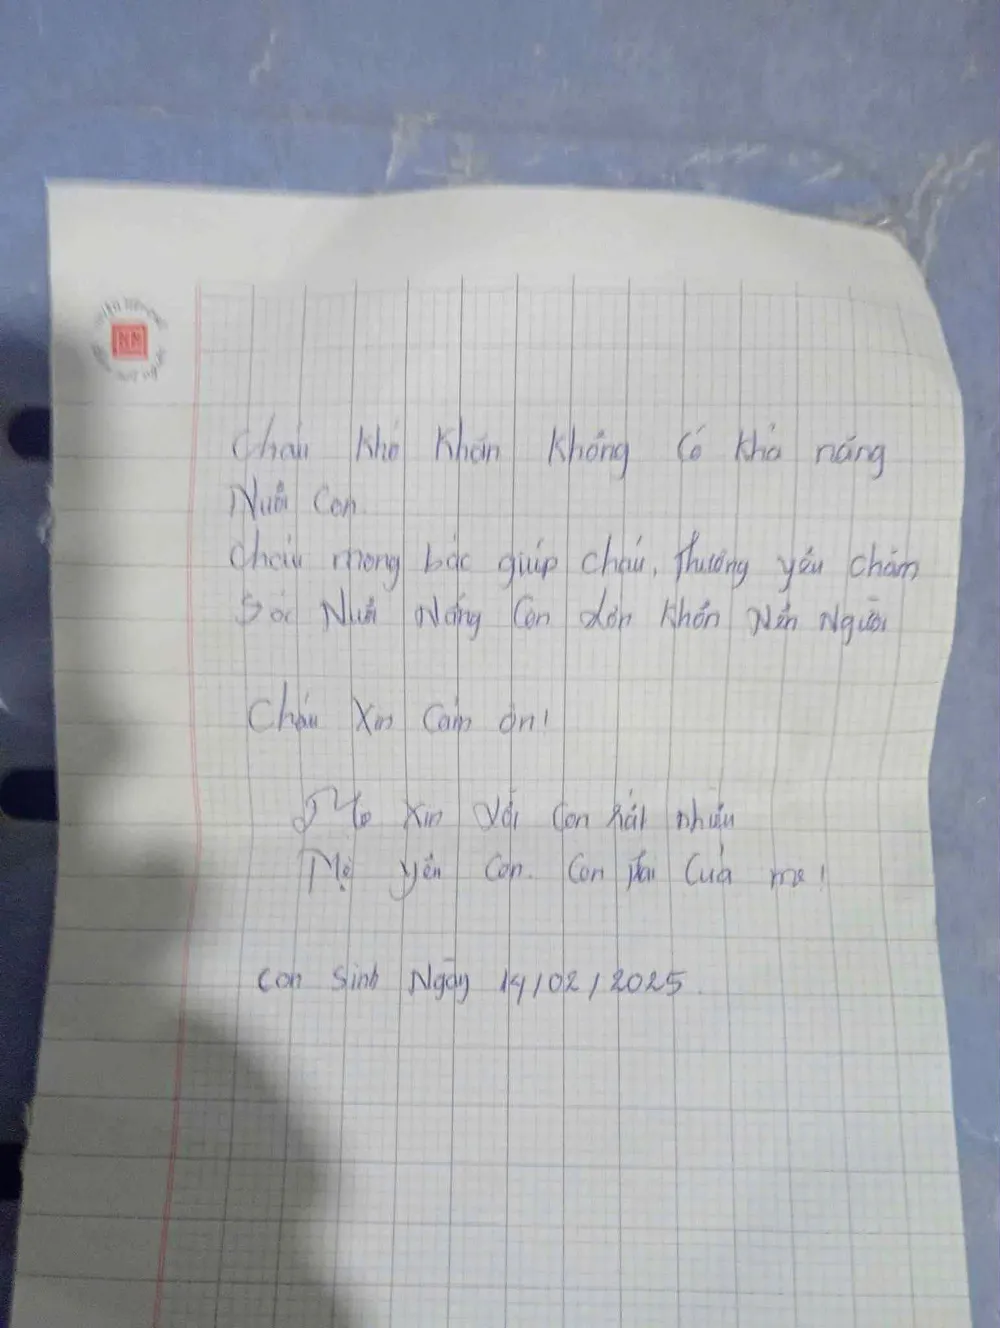 Cháu khó khăn không có khả năng
Nuôi con.
Cháu mong bác giúp cháu, thương yêu chăm
Sóc Nuôi Nấng Con lớn khôn Nên Người
Cháu Xin Cảm ơn!
Mẹ xin lỗi con rất nhiều
Mẹ yêu con. Con trai của mẹ!
Con Sinh Ngày 14/02/2025.